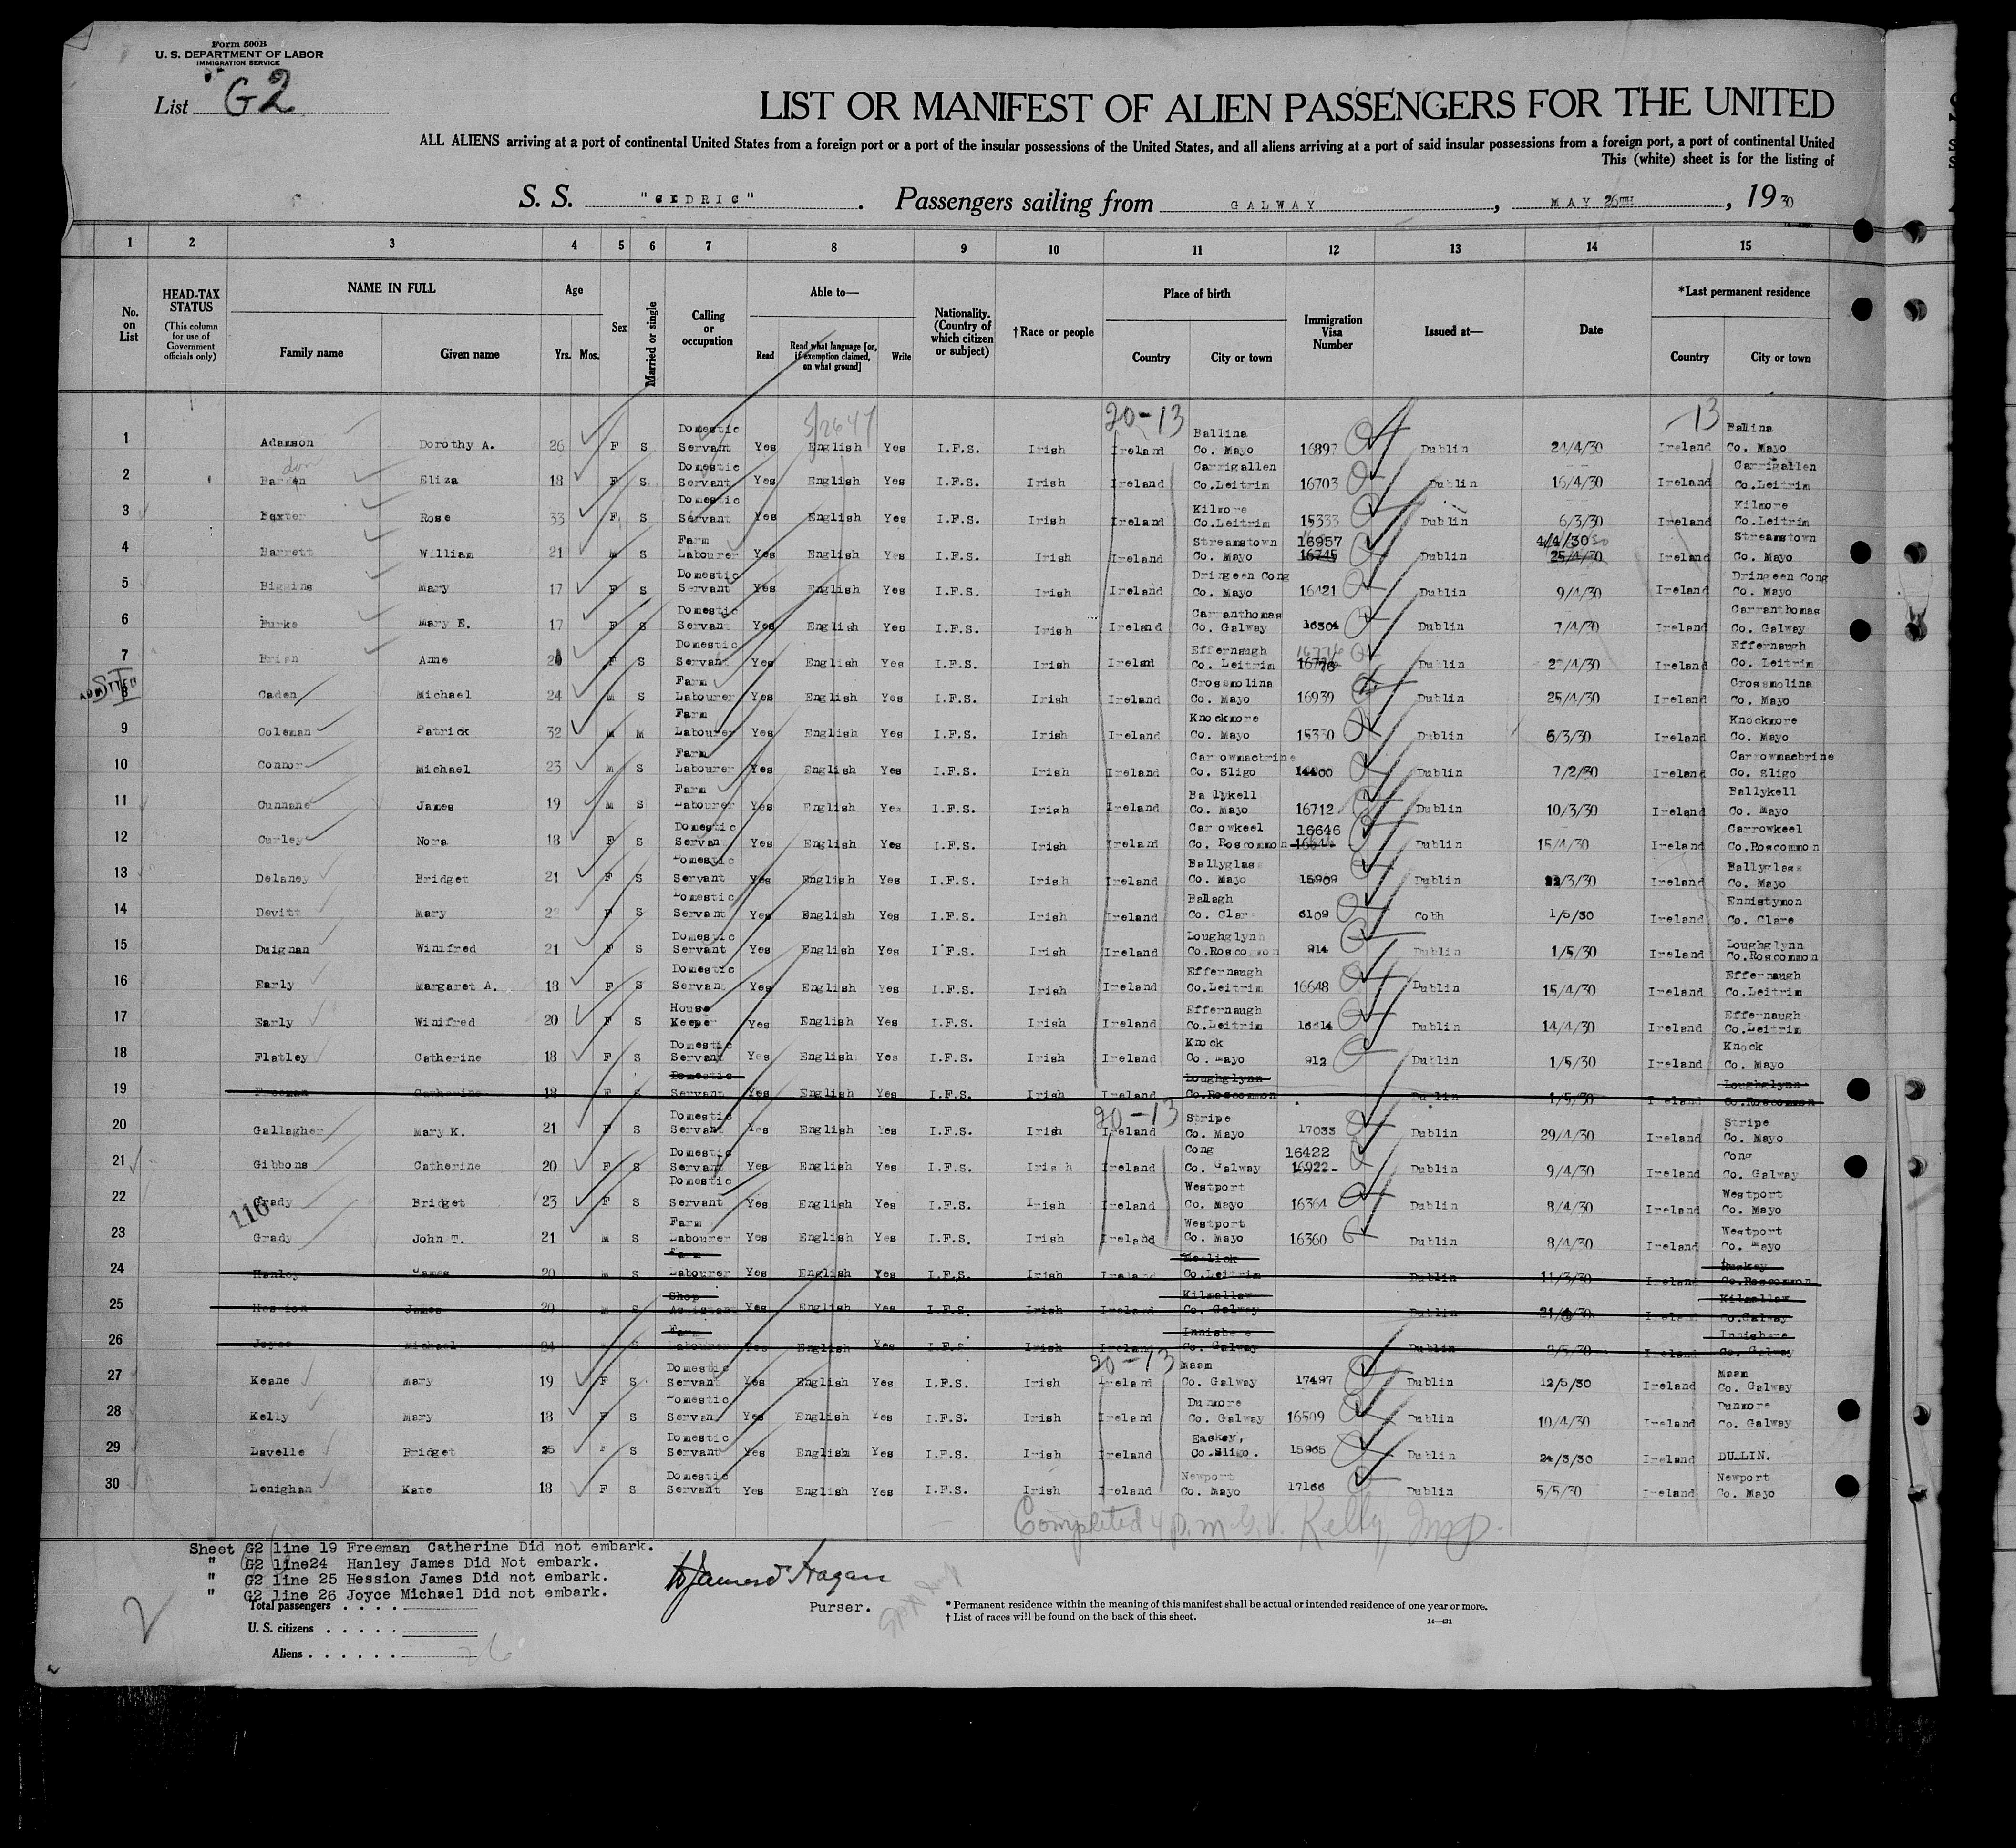 Form 500B
U. S. DEPARTMENT OF LABOR
IMMIGRATION SERVICE
List G2
LIST OR MANIFEST OF ALIEN PASSENGERS FOR THE UNITED
ALL ALIENS arriving at a port of continental United States from a foreign port or a port of the insular possessions of the United States, and all aliens arriving at a port of said insular possessions from a foreign port, a port of continental United
This (white) sheet is for the listing of
S. S. "CEDRIC". Passengers sailing from GALWAY, MAY 26TH, 1930
1 2 3 4 5 6 7 8 9 10 11 12 13 14 15
No. on List HEAD-TAX STATUS (This column for use of Government officials only) NAME IN FULL Family name Given name Age Yrs. Mos. Sex Married or single Calling or occupation Able to— Read Read what language [or, if exemption claimed, on what ground] Write Nationality. (Country of which citizen or subject) †Race or people Place of birth Country City or town Immigration Visa Number Issued at— Date *Last permanent residence Country City or town
20-13 13
1 Adamson Dorothy A. 26 F S Domestic Servant Yes English Yes I.F.S. Irish Ireland Ballina Co. Mayo 16897 Dublin 24/4/30 Ireland Ballina Co. Mayo
2 Barden Eliza 18 F S Domestic Servant Yes English Yes I.F.S. Irish Ireland Carrigallen Co.Leitrim 16703 Dublin 16/4/30 Ireland Carrigallen Co.Leitrim
3 Baxter Rose 33 F S Domestic Servant Yes English Yes I.F.S. Irish Ireland Kilmore Co.Leitrim 15333 Dublin 6/3/30 Ireland Kilmore Co.Leitrim
4 Barrett William 21 M S Farm Labourer Yes English Yes I.F.S. Irish Ireland Streamstown Co. Mayo 16957 16745 Dublin 4/4/30 25/4/30 Ireland Streamstown Co. Mayo
5 Biggins Mary 17 F S Domestic Servant Yes English Yes I.F.S. Irish Ireland Dringeen Cong Co. Mayo 16421 Dublin 9/4/30 Ireland Dringeen Cong Co. Mayo
6 Burke Mary E. 17 F S Domestic Servant Yes English Yes I.F.S. Irish Ireland Carranthomas Co. Galway 16304 Dublin 7/4/30 Ireland Carranthomas Co. Galway
7 Brian Anne F S Domestic Servant Yes English Yes I.F.S. Irish Ireland Effernaugh Co. Leitrim 16776 Dublin Ireland Effernaugh Co. Leitrim
ADMITTED
8 Caden Michael 24 M S Farm Labourer Yes English Yes I.F.S. Irish Ireland Crossmolina Co. Mayo 16939 Dublin 25/4/30 Ireland Crossmolina Co. Mayo
9 Coleman Patrick 32 M M Farm Labourer Yes English Yes I.F.S. Irish Ireland Knockmore Co. Mayo 15330 Dublin 6/3/30 Ireland Knockmore Co. Mayo
10 Connor Michael 23 M S Farm Labourer Yes English Yes I.F.S. Irish Ireland Carrowmacbrine Co. Sligo 14400 Dublin 7/2/30 Ireland Carrowmacbrine Co. Sligo
11 Cunnane James 19 M S Farm Labourer Yes English Yes I.F.S. Irish Ireland Ballykell Co. Mayo 16712 Dublin 10/3/30 Ireland Ballykell Co. Mayo
12 Curley Nora 18 F S Domestic Servant Yes English Yes I.F.S. Irish Ireland Carrowkeel Co. Roscommon 16646 Dublin 15/4/30 Ireland Carrowkeel Co.Roscommon
13 Delaney Bridget 21 F S Domestic Servant Yes English Yes I.F.S. Irish Ireland Ballyglass Co. Mayo 15909 Dublin 22/3/30 Ireland Ballyglass Co. Mayo
14 Devitt Mary 22 F S Domestic Servant Yes English Yes I.F.S. Irish Ireland Ballagh Co. Clare 6109 Cobh 1/5/30 Ireland Ennistymon Co. Clare
15 Duignan Winifred 21 F S Domestic Servant Yes English Yes I.F.S. Irish Ireland Loughglynn Co.Roscommon 914 Dublin 1/5/30 Ireland Loughglynn Co.Roscommon
16 Early Margaret A. 18 F S Domestic Servant Yes English Yes I.F.S. Irish Ireland Effernaugh Co.Leitrim 16648 Dublin 15/4/30 Ireland Effernaugh Co.Leitrim
17 Early Winifred 20 F S House Keeper Yes English Yes I.F.S. Irish Ireland Effernaugh Co.Leitrim Dublin 14/4/30 Ireland Effernaugh Co.Leitrim
18 Flatley Catherine 18 F S Domestic Servant Yes English Yes I.F.S. Irish Ireland Knock Co. Mayo 912 Dublin 1/5/30 Ireland Knock Co. Mayo
19 Freeman Catherine 18 F S Domestic Servant Yes English Yes I.F.S. Irish Ireland Loughglynn Co.Roscommon Dublin 1/5/30 Ireland Loughglynn Co.Roscommon
20-13
20 Gallagher Mary K. 21 F S Domestic Servant Yes English Yes I.F.S. Irish Ireland Stripe Co. Mayo 17033 Dublin 29/4/30 Ireland Stripe Co. Mayo
21 Gibbons Catherine 20 F S Domestic Servant Yes English Yes I.F.S. Irish Ireland Cong Co. Galway 16422 16922 Dublin 9/4/30 Ireland Cong Co. Galway
22 Grady Bridget 23 F S Domestic Servant Yes English Yes I.F.S. Irish Ireland Westport Co. Mayo 16364 Dublin 8/4/30 Ireland Westport Co. Mayo
116
23 Grady John T. 21 M S Farm Labourer Yes English Yes I.F.S. Irish Ireland Westport Co. Mayo 16360 Dublin 8/4/30 Ireland Westport Co. Mayo
24 Hanley James 20 M S Farm Labourer Yes English Yes I.F.S. Irish Ireland Co.Leitrim Dublin 11/3/30 Ireland Co.Roscommon
25 Hession James 20 M S Shop Assistant Yes English Yes I.F.S. Irish Ireland Kilmallaw Co. Galway Dublin Ireland Kilmallaw Co.Galway
26 Joyce Michael 24 S Farm Labourer Yes English Yes I.F.S Irish Ireland Innishere Co. Galway Dublin 2/5/30 Ireland Innishere Co. Galway
20-13
27 Keane Mary 19 F S Domestic Servant Yes English Yes I.F.S. Irish Ireland Maam Co. Galway 17497 Dublin 12/5/30 Ireland Maam Co. Galway
28 Kelly Mary 18 F S Domestic Servant Yes English Yes I.F.S. Irish Ireland Dunmore Co. Galway 16509 Dublin 10/4/30 Ireland Dunmore Co. Galway
29 Lavelle Bridget 25 F S Domestic Servant Yes English Yes I.F.S. Irish Ireland Easkey, Co.Sligo. 15965 Dublin 24/3/30 Ireland DULLIN.
30 Lenighan Kate 18 F S Domestic Servant Yes English Yes I.F.S. Irish Ireland Newport Co. Mayo 17166 Dublin 5/5/30 Ireland Newport Co. Mayo
Completed 4 p.m. Kelly, Insp.
Sheet G2 line 19 Freeman Catherine Did not embark.
" G2 line24 Hanley James Did Not embark.
" G2 line 25 Hession James Did not embark.
" G2 line 26 Joyce Michael Did not embark.
Total passengers
U. S. citizens
Aliens 26
2
Purser.
* Permanent residence within the meaning of this manifest shall be actual or intended residence of one year or more.
† List of races will be found on the back of this sheet.
14—431